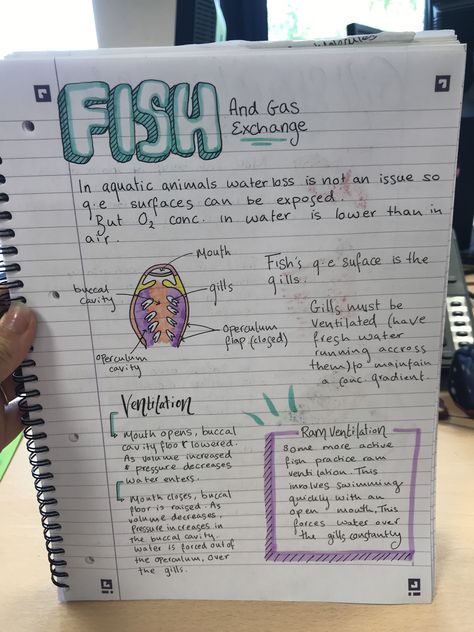 FISH And Gas
Exchange
In aquatic animals water loss is not an issue so
g.e surfaces can be exposed.
But O₂ conc. in water is lower than in
air.
Mouth
buccal
cavity
gills
operculum
flap (closed)
operculum
cavity
Fish's g.e suface is the
gills.
Gills must be
ventilated (have
fresh water
running accross
them) to maintain
a conc. gradient.
Ventilation
Mouth opens, buccal
cavity floor lowered.
As volume increased
pressure decreases
water enters.
Mouth closes, buccal
floor is raised. As
volume decreases,
pressure increases in
the buccal cavity.
water is forced out of
the operculum, over
the gills.
Ram Ventilation
Some more active
fish practice ram
ventilation. This
involves swimming
quickly with an
open mouth, This
forces water over
the gills constantly